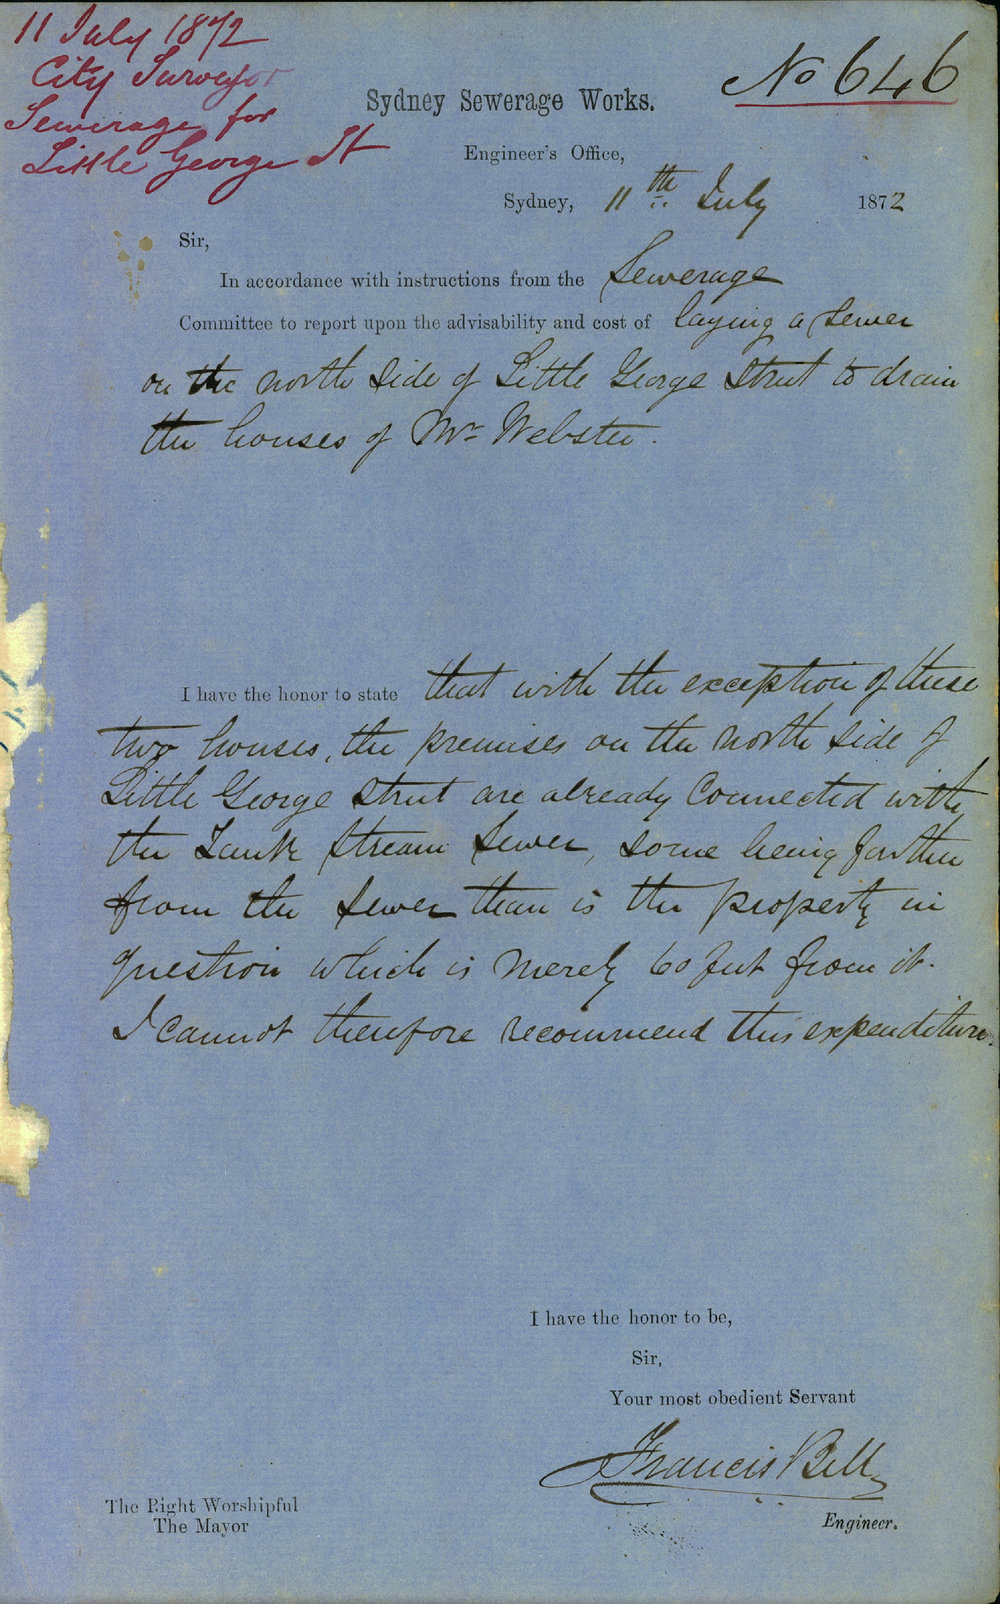 11 July 1872
City Surveyor
Sewerage for
Little George St
No 646
Sydney Sewerage Works.
Engineer's Office,
Sydney, 11th July 1872
Sir,
In accordance with instructions from the Sewerage
Committee to report upon the advisability and cost of laying a sewer
on the north side of Little George Street to drain
the houses of Mr Webster.
I have the honor to state that with the exception of these
two houses, the premises on the north side of
Little George Street are already connected with
the Tank Stream Sewer, some being further
from the sewer than is the property in
question which is merely 60 feet from it.
I cannot therefore recommend this expenditure.
I have the honor to be,
Sir,
Your most obedient Servant
Francis Bell
Engineer.
The Right Worshipful
The Mayor